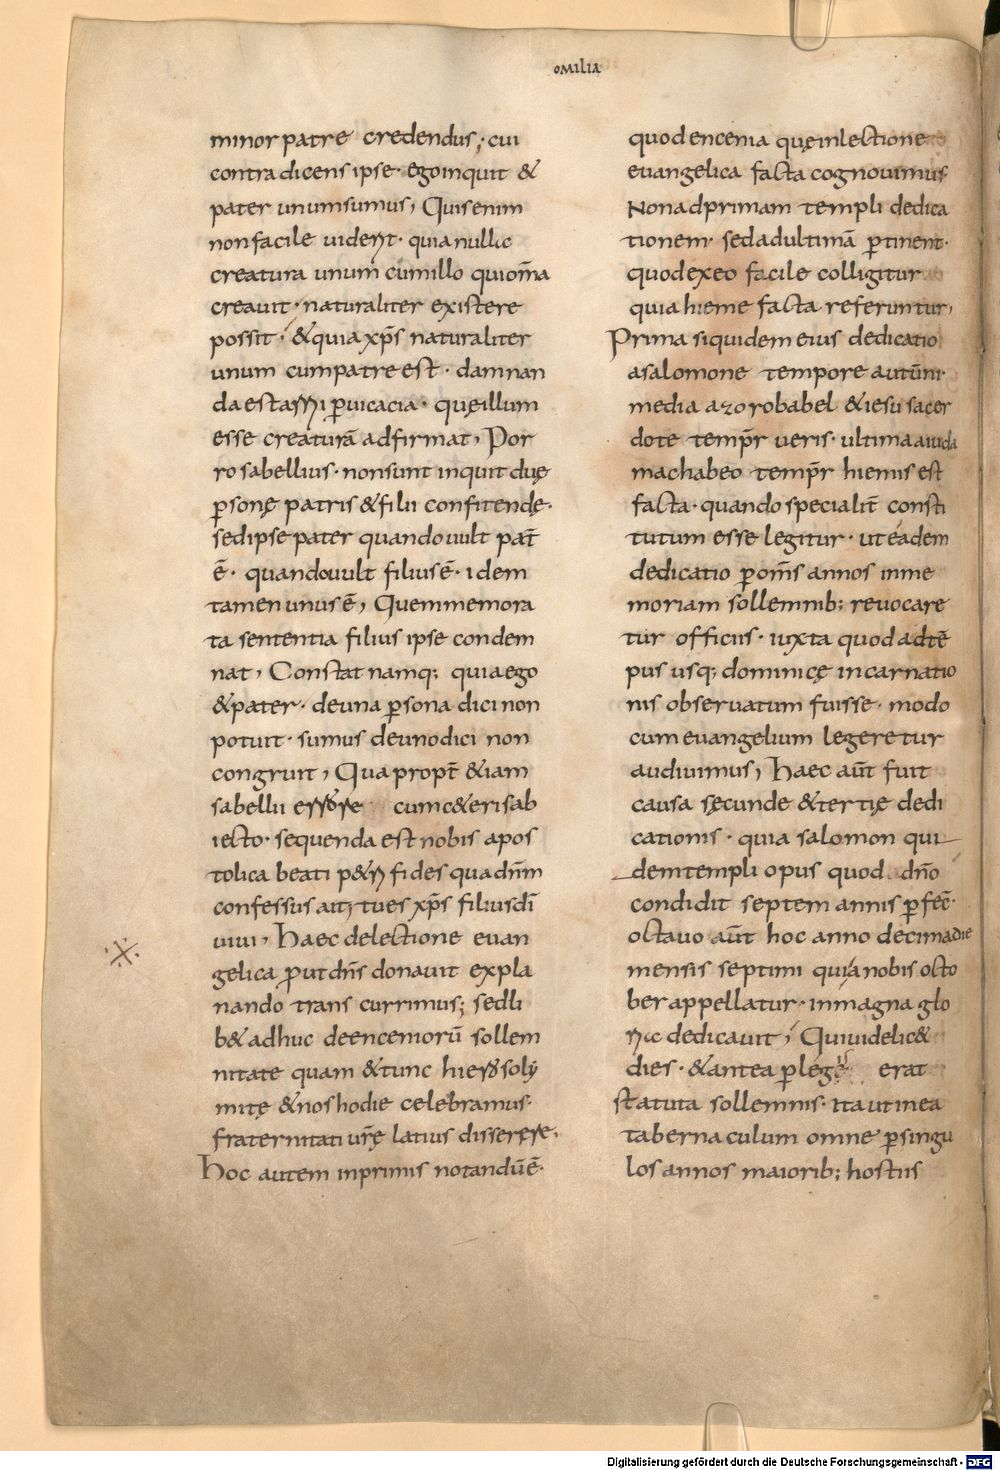 OMILIA
minor patre credendus; cui
contradicens ipse· ego inquit &
pater unum sumus, Quis enim
non facile uident· quia nullie
creatura unum cum illo qui om̅a
creauit· naturaliter existere
possit; & quia xp̅s naturaliter
unum cum patre est· damnan
da est arri puicacia· quę illum
esse creaturā adfirmat, Por
ro sabellius· non sunt inquit duę
p̲sonę patris & filii confitendę·
sed ipse pater quando uult pat̅
ē· quando uult filius ē· idem
tamen unus ē, Quem memora
ta sententia filius ipse condem
nat, Constat namq; quia ego
& pater· de una p̲sona dici non
potuit· sumus de uno dici non
congruit, Qua propt̅ & iam
sabellii errore cum c&eris ab
iecto· sequenda est nobis apos
tolica beati p&ri fides qua dn̅m
confessus ait; tu es xp̅s filius dī
uiui, Haec de lectione euan
gelica p̲ut dn̅s donauit expla
nando transcurrimus; sed li
b& adhuc de encemorū sollem
nitate quam & tunc hierosoly
mitę & nos hodie celebramus·
fraternitati ur̅ę latius disserere,
Hoc autem inprimis notandū ē·
quod encenia quę in lectione
euangelica facta cognouimus
Non ad primam templi dedica
tionem· sed ad ultimā p̲tinent·
quod ex eo facile colligitur
quia hieme facta referuntur,
Prima siquidem eius dedicatio
a salomone tempore autūni·
media a zorobabel & iesu sacer
dote temp̅r ueris· ultima a iuda
machabeo temp̅r hiemis est
facta· quando specialit̅ consti
tutum esse legitur· ut eadem
dedicatio p̲ om̅s annos in me
moriam sollemnib; reuocare
tur officiis· iuxta quod ad tē
pus usq; dominicę incarnatio
nis obseruatum fuisse· modo
cum euangelium legeretur
audiuimus, Haec aut̅ fuit
causa secundę & tertię dedi
cationis· quia salomon qui
dem templi opus quod dn̅o
condidit septem annis p̲fec̅·
octauo aut̅ hoc anno decima die
mensis septimi quia nobis octo
ber appellatur· in magna glo
ria dedicauit; Qui uidelic&
dies· & antea p̲ legē erat
statuta sollemnis· ita ut in ea
tabernaculum omne p̲ singu
los annos maiorib; hostiis
Digitalisierung gefördert durch die Deutsche Forschungsgemeinschaft - DFG